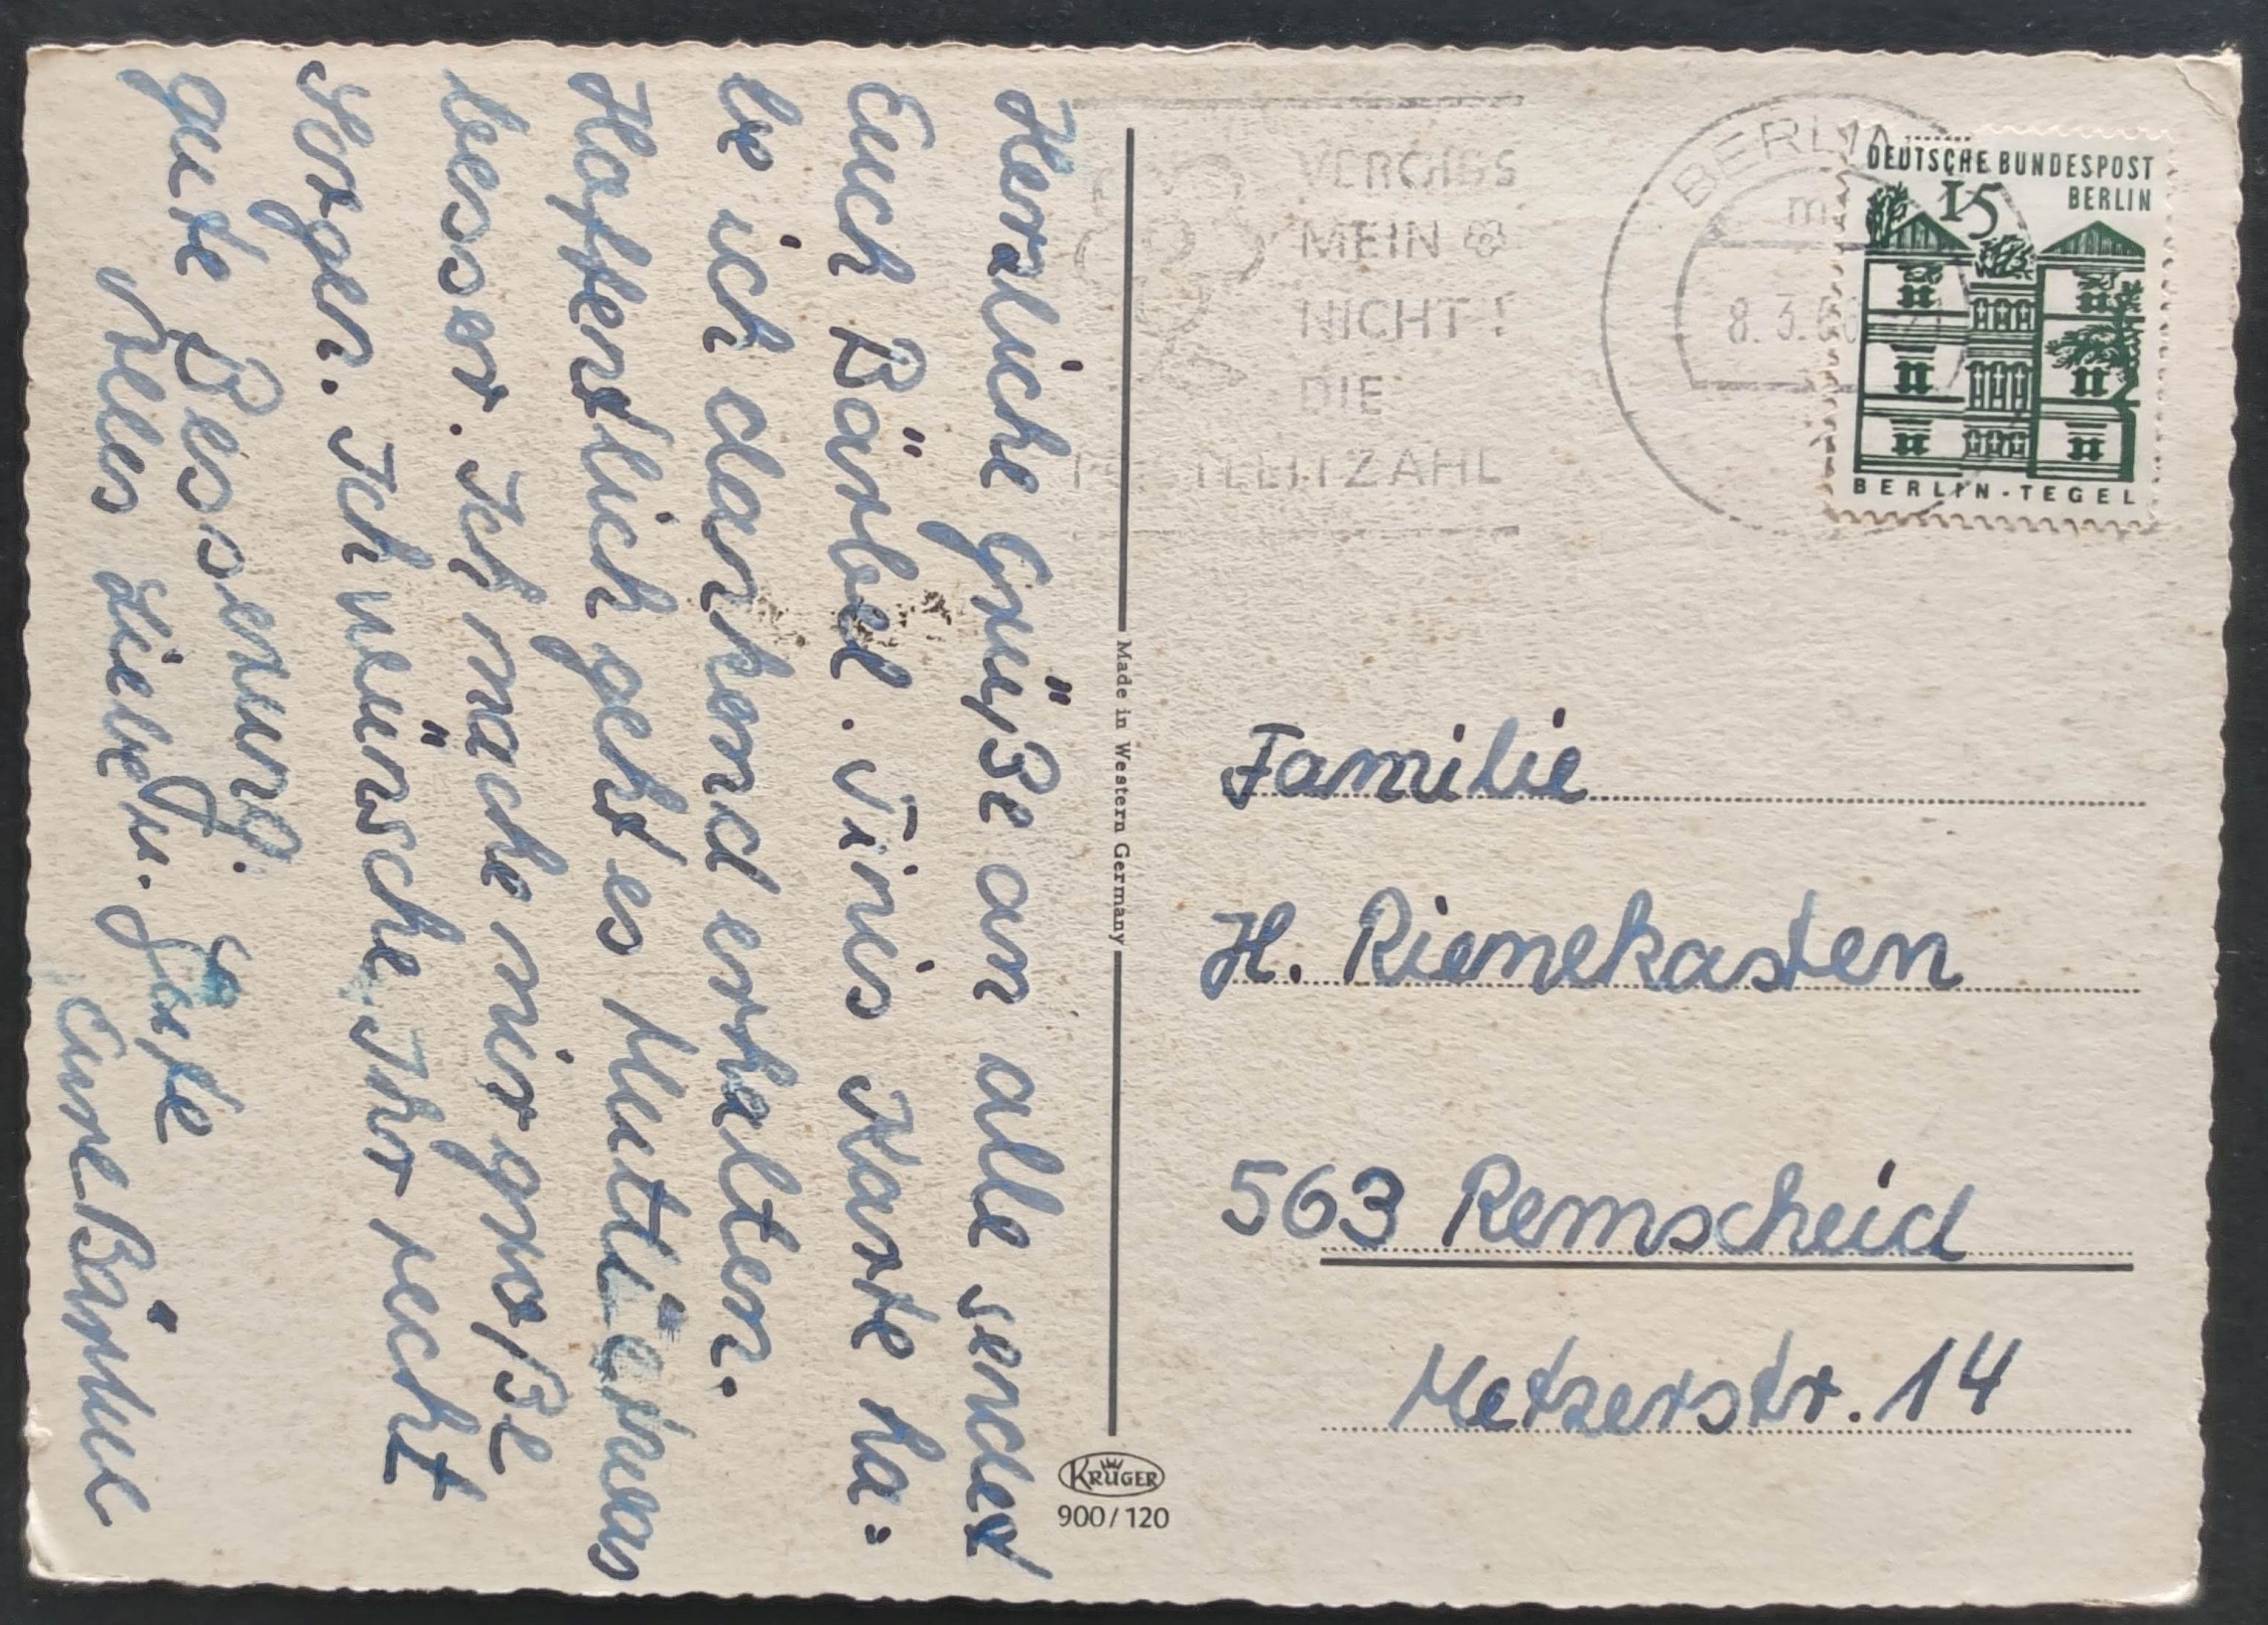 Herzliche Grüße an alle sendet
Euch Bärbel. Tinis Karte ha=
be ich dankend erhalten.
Hoffentlich geht es Mutti etwas
besser. Ich mache mir große
Sorgen. Ich wünsche Ihr recht
gute Besserung.
Alles Liebe u. Gute
Eure Bärbel
VERGISS
MEIN
NICHT!
DIE
POSTLEITZAHL
BERLIN
m
8. 3.
DEUTSCHE BUNDESPOST
BERLIN
15
BERLIN-TEGEL
Made in Western Germany
Familie
H. Rienekasten
563 Remscheid
Metzerstr. 14
KRÜGER
900/120